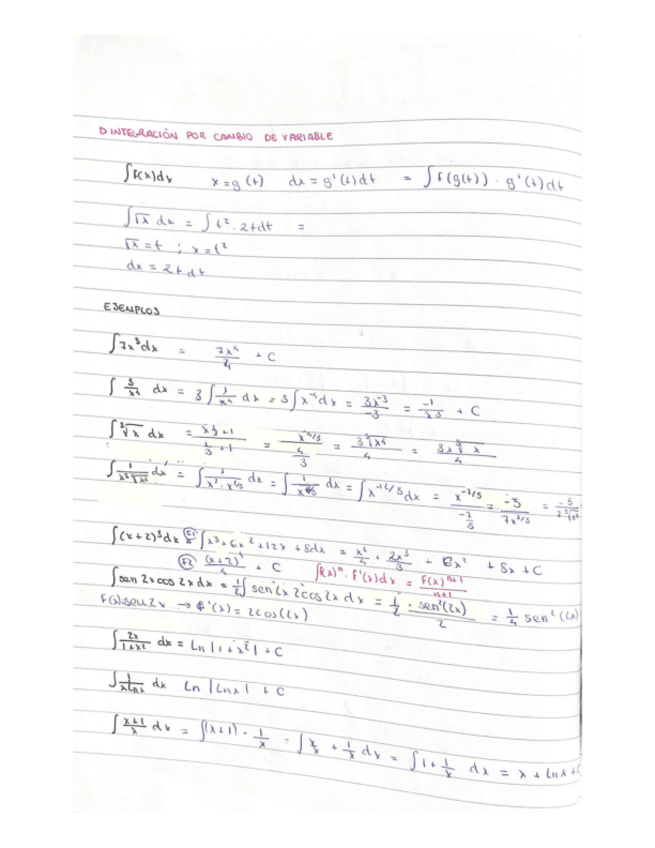 ▷ INTEGRACIÓN POR CAMBIO DE VARIABLE
∫f(x)dx x=g(t) dx=g'(t)dt = ∫f(g(t))·g'(t)dt
∫√x dx = ∫t²·2t dt =
√x=t ; x=t²
dx = 2t dt
EJEMPLOS
∫7x³dx = 7x⁴/4 + C
∫3/x⁴ dx = 3∫1/x⁴ dx = 3∫x⁻⁴dx = 3x⁻³/-3 = -1/x³ + C
∫³√x dx = x^(1/3 +1)/(1/3 +1) = x^(4/3)/(4/3) = 3³√x⁴/4 = 3x³√x/4
dx = ∫1/(x²·x^(2/5)) dx = dx = ∫x^(-12/5)dx = =
∫(x+2)³dx (F1) = ∫x³+6x²+12x+8dx = x⁴/4 + 2x³ + + 8x + C
(F2) (x+2)⁴/4 + C ∫f(x)ⁿ·f'(x)dx = f(x)ⁿ⁺¹/n+1
∫sen 2x cos 2x dx = 1/2 ∫sen 2x 2cos 2x dx = 1/2 · sen²(2x)/2 = 1/4 sen²(2x)
f(x)=sen 2x → f'(x) = 2cos(2x)
∫2x/(1+x²) dx = Ln|1+x²| + C
∫1/(x Lnx) dx Ln|Lnx| + C
∫(x+1)/x dx = ∫(x+1)·1/x = ∫x/x + 1/x dx = ∫1+1/x dx = x + Lnx + C